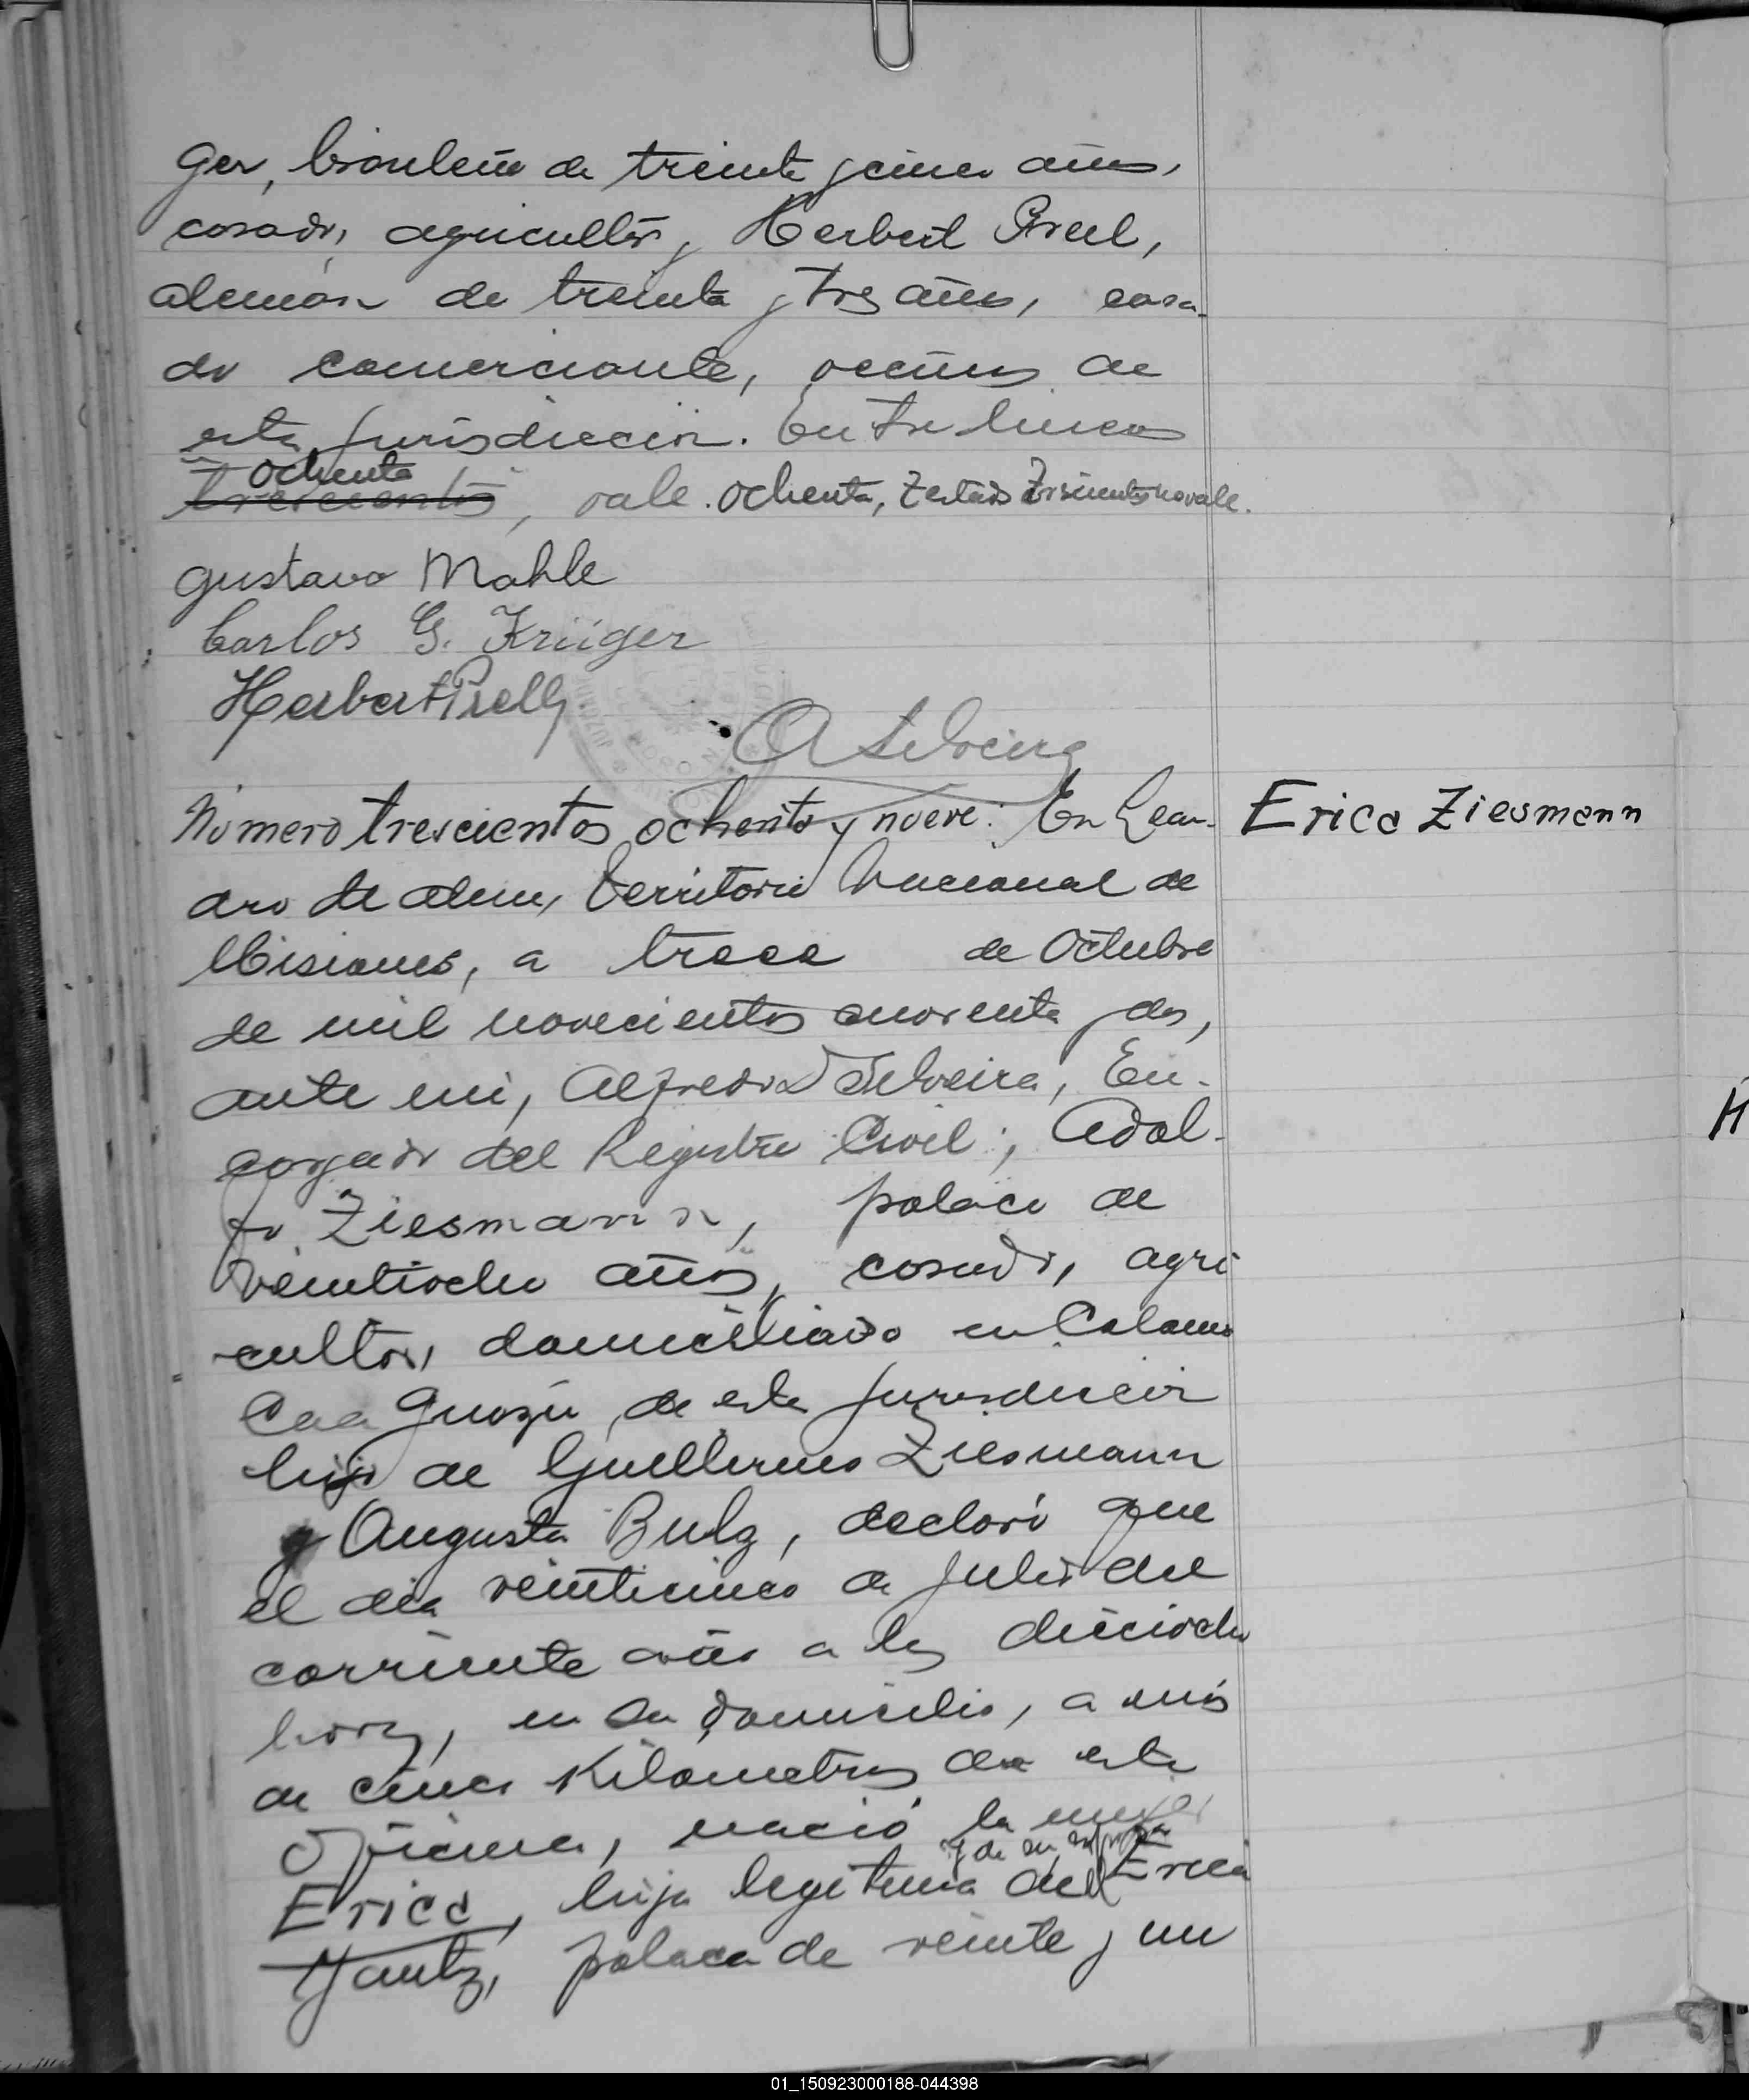 ger, brasileño de treinta y cinco años,
casado, agricultor, y Herbert Prell,
alemán de treinta y tres años, casa-
do comerciante, vecinos de
esta jurisdicción. Entre lineas
ochenta
trescientos, vale. ochenta, Testado trescientos no vale.
Gustavo Mahle
Carlos G. Krüger
Herbert Prell
A Silveira
Número trescientos ochenta y nueve: En Lean-
dro N. Alem, Territorio Nacional de
Misiones, a trece de Octubre
de mil novecientos cuarenta y dos,
ante mi, Alfredo Silveira, En-
cargado del Registro Civil; Adol-
fo Ziesmann, polaco de
veintiocho años, casado, agri
cultor, domiciliado en Colonia
Caa Guazú, de esta jurisdicción
hijo de Guillermo Ziesmann
y Augusta Bulz, declaró que
el día veinticinco de Julio del
corriente año a las dieciocho
horas, en su domicilio, a más
de cinco Kilometros de esta
Oficina, nació la mujer
y de su esposa
Erica, hija legitima del Erica
Yantz, polaca de veinte y un
Erica Ziesmann
H
01_150923000188-044398